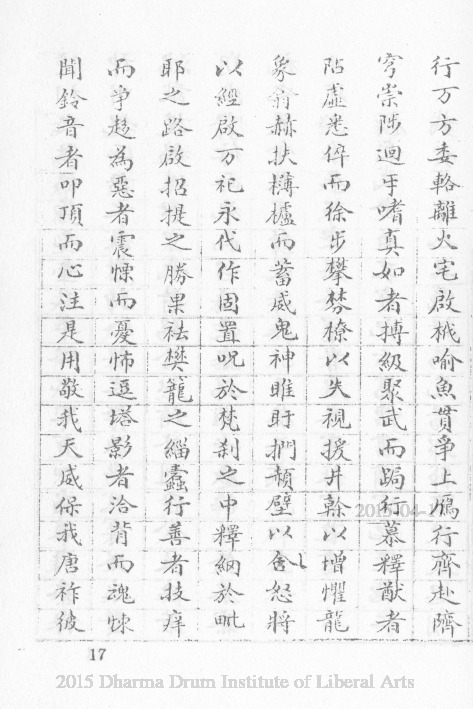 行万方委輅離火宅啟檝喻魚貫爭上鴈行齊赴隮
穹崇陟迴乎嗜真如者搏級聚武而跼行慕釋猷者
阽虛悉倅而徐步攀棼橑以失視援井幹以增懼龍
象翕赫扶欂櫨而蓄威鬼神睢盱捫頳壁以含怒將
以經啟万祀永代作固置呪於梵刹之中釋網於毗
耶之路啟招提之勝果袪樊籠之緇蠹行善者技痒
而爭趍為惡者震慄而憂怖逗塔影者洽背而魂悚
聞鈴音者叩頂而心注是用敬我天威保我唐祚彼
17
2015 Dharma Drum Institute of Liberal Arts